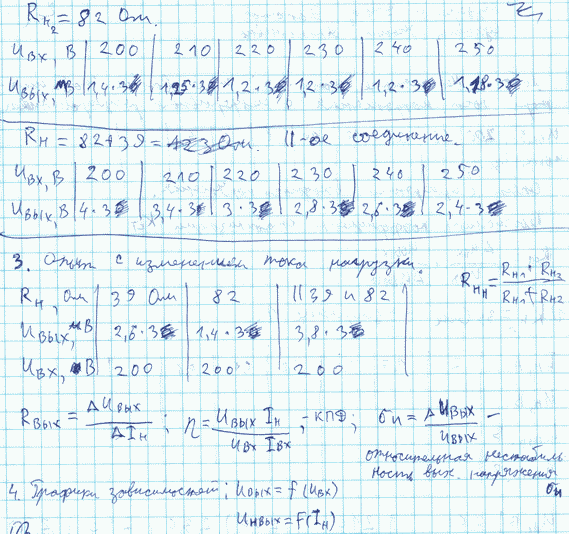 Rн₂ = 82 Ом.
Uвх, В | 200 | 210 | 220 | 230 | 240 | 250
Uвых, мВ | 1,4·3 | 1,25·3 | 1,2·3 | 1,2·3 | 1,2·3 | 1,18·3
Rн = 82+39 = Ом. ||-ое соединение.
Uвх, В | 200 | 210 | 220 | 230 | 240 | 250
Uвых, В | 4·3 | 3,4·3 | 3·3 | 2,8·3 | 2,6·3 | 2,4·3
3. Опыт с изменением тока нагрузки.
Rнн = Rн1 · Rн2 / Rн1 + Rн2
Rн, Ом | 39 Ом | 82 | || 39 и 82
Uвых, мВ | 2,6·3 | 1,4·3 | 3,8·3
Uвх, В | 200 | 200 | 200
Rвых = ΔUвых / ΔIн ; η = Uвых Iн / Uвх Iвх , - КПД; σн = ΔUвых / Uвых –
относительная нестабиль
ность вых. напряжения
σн
4. Графики зависимостей; Uвых = f (Uвх)
Uнвых = F(Iн)